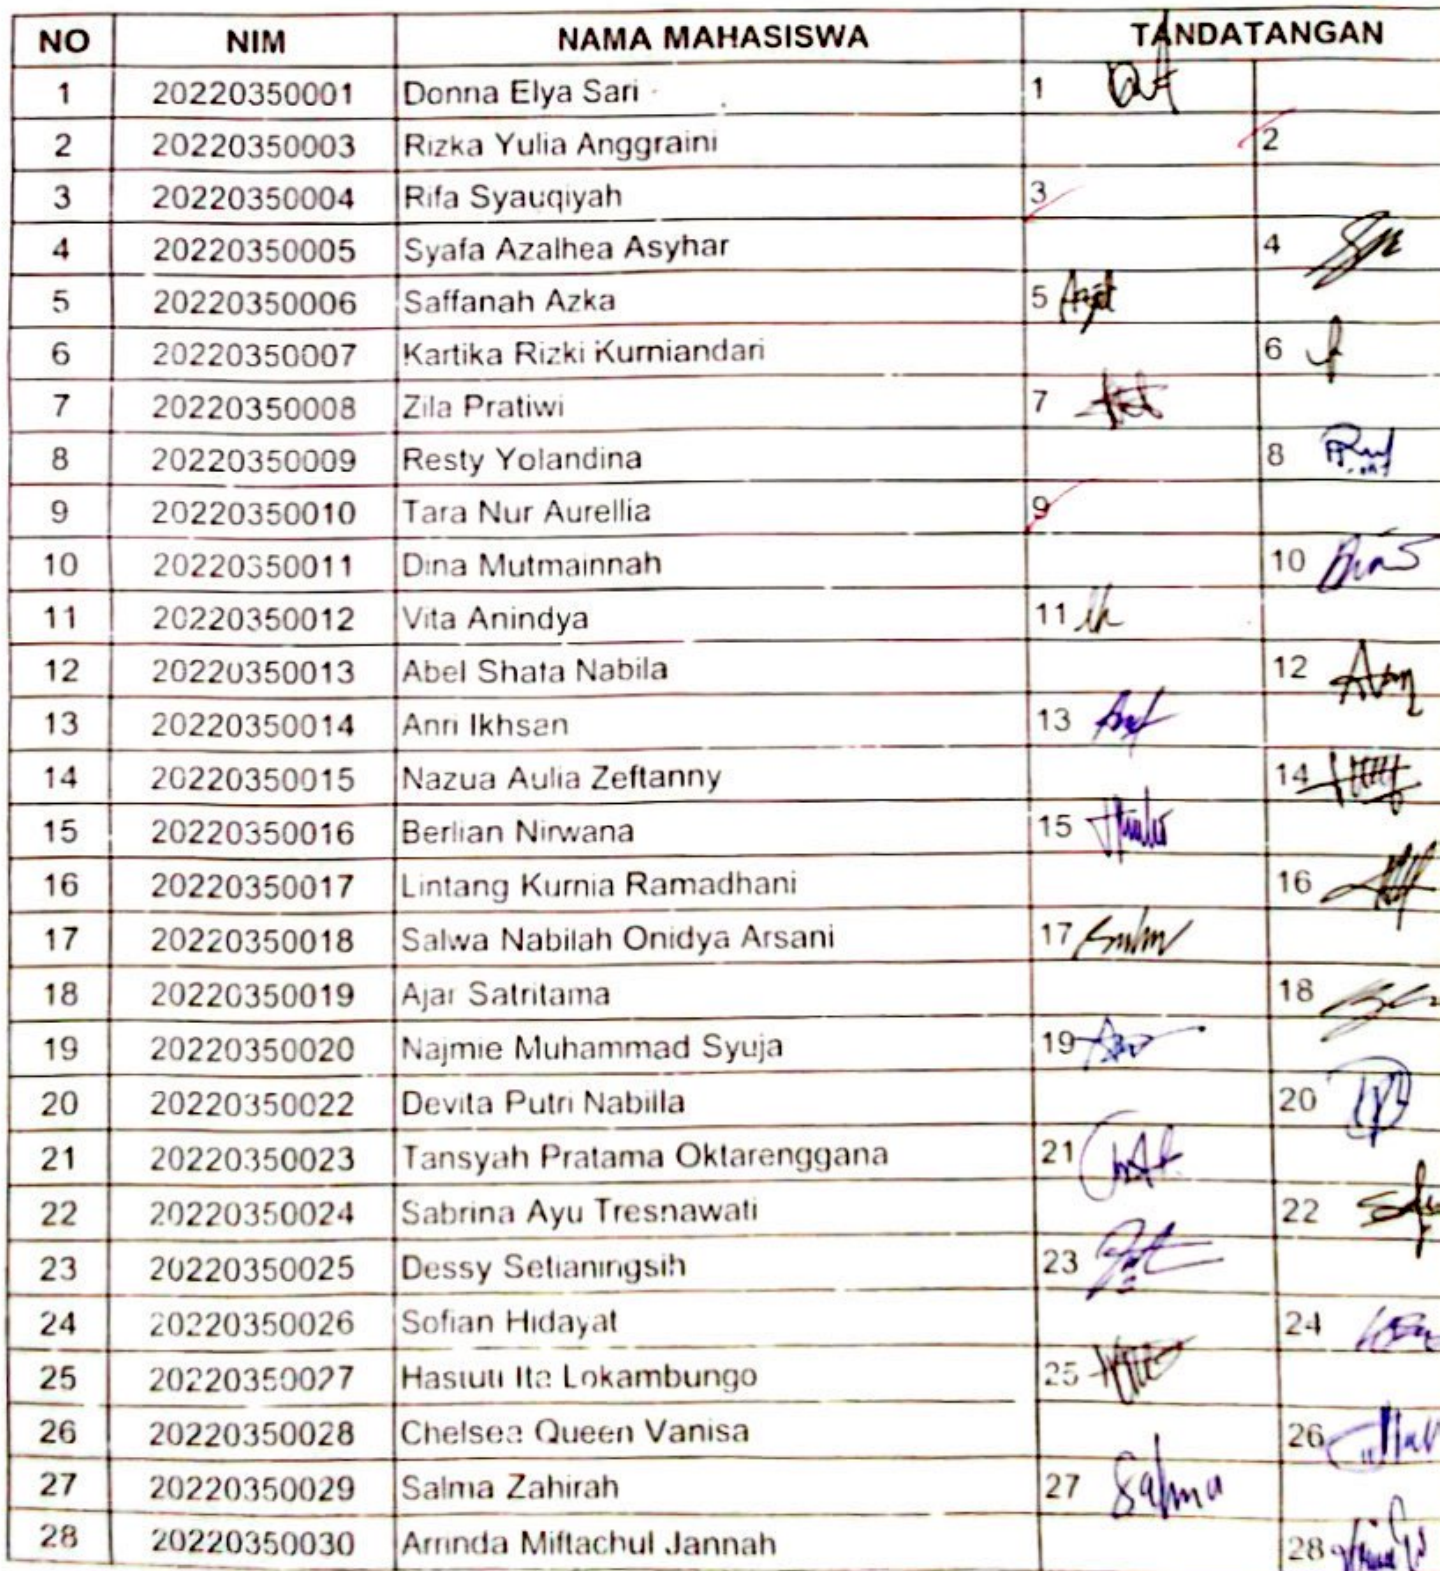 NO NIM NAMA MAHASISWA TANDATANGAN
1 20220350001 Donna Elya Sari 1
2 20220350003 Rizka Yulia Anggraini 2
3 20220350004 Rifa Syauqiyah 3
4 20220350005 Syafa Azalhea Asyhar 4
5 20220350006 Saffanah Azka 5
6 20220350007 Kartika Rizki Kurniandari 6
7 20220350008 Zila Pratiwi 7
8 20220350009 Resty Yolandina 8
9 20220350010 Tara Nur Aurellia 9
10 20220350011 Dina Mutmainnah 10
11 20220350012 Vita Anindya 11
12 20220350013 Abel Shafa Nabila 12
13 20220350014 Anri Ikhsan 13
14 20220350015 Nazua Aulia Zeftanny 14
15 20220350016 Berlian Nirwana 15
16 20220350017 Lintang Kurnia Ramadhani 16
17 20220350018 Salwa Nabilah Onidya Arsani 17
18 20220350019 Ajar Satritama 18
19 20220350020 Najmie Muhammad Syuja 19
20 20220350022 Devita Putri Nabilla 20
21 20220350023 Tansyah Pratama Oktarenggana 21
22 20220350024 Sabrina Ayu Tresnawati 22
23 20220350025 Dessy Setianingsih 23
24 20220350026 Sofian Hidayat 24
25 20220350027 Hastuti Ita Lokambungo 25
26 20220350028 Chelsea Queen Vanisa 26
27 20220350029 Salma Zahirah 27 Salma
28 20220350030 Arrinda Miftachul Jannah 28